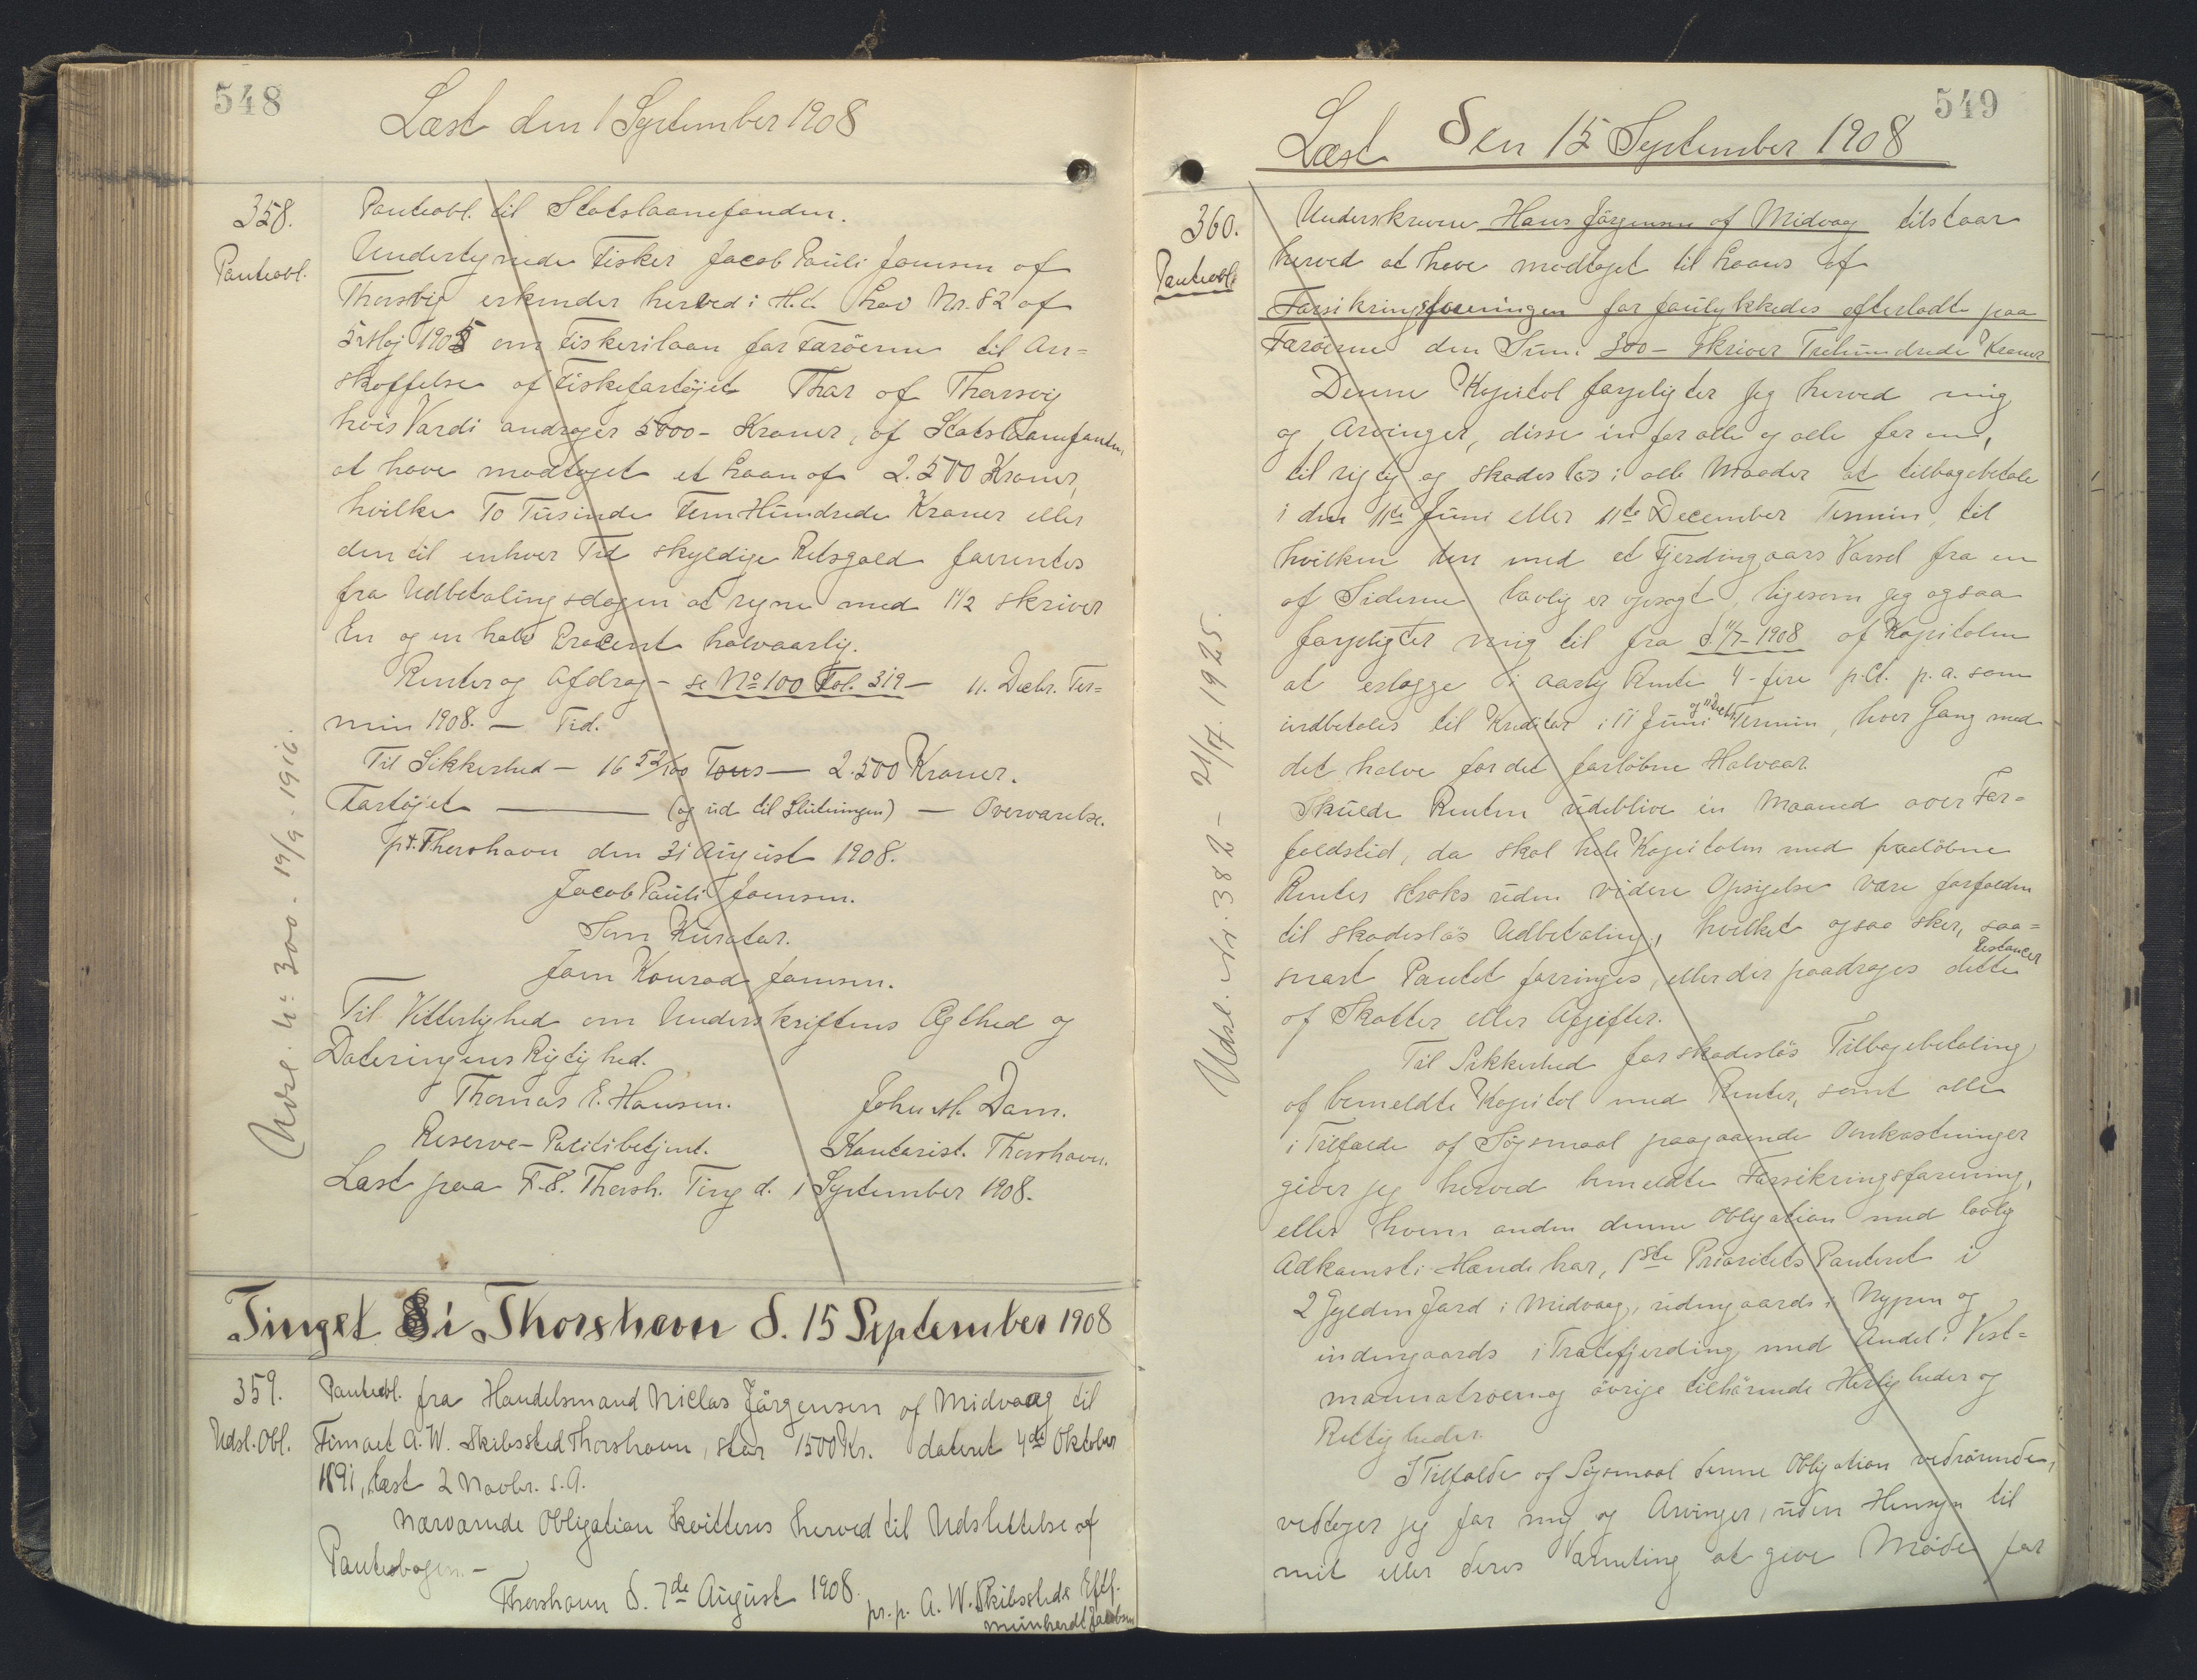 548
Læst den 1 September 1908
358.
Panteobl.
Panteobl. til Statslaanefonden.
Undertegnede Fisker Jacob Pauli Joensen af
Thorsvig erkender herved i H.t. Lov Nr. 82 af
5 Maj 1905 om Fiskerilaan for Færöerne til An=
skaffelse af Fiskefartöjet Thor af Thorsvig
hvis Værdi andrager 5000- Kroner, af Statslaanefonden
at have modtaget et Laan af 2.500 Kroner,
hvilke To Tusinde Fem Hundrede Kroner eller
den til enhver Tid skyldige Restgæld forrentes
fra Udbetalingsdagen at regne med 1 1/2 skriver
En og en halv Procent halvaarlig.
Renter og Afdrag - se No 100 Fol. 319 - 11. Decbr. Ter=
min 1908. — Tid.
Til Sikkerhed — 16 52/100 Tons — 2.500 Kroner.
Fartöjet — (og ud til Slutningen) — Overværelse.
pt. Thorshavn den 31 August 1908.
Jacob Pauli Joensen.
Som Kurator.
Joen Konrad Joensen.
Til Vitterlighed om Underskriftens Ægthed og
Dateringens Rigtighed.
Thomas E. Hansen. John M. Dam.
Reserve-Politibetjent. Kontorist. Thorshavn.
Læst paa F.S. Thorsh. Ting d. 1 September 1908.
Udsl. No 300. 19/9. 1916.
Tinget i Thorshavn d. 15 September 1908
359.
Udsl. Obl.
Panteobl. fra Handelsmand Niclas Jörgensen af Midvaag til
Firmaet A.W. Skibssted Thorshavn, stor 1500 Kr. dateret 4de Oktober
1891, læst 2 Novbr. s.A.
Nærværende Obligation kvitteres herved til Udslettelse af
Pantebogen. -
Thorshavn d. 7de August 1908.
pr.p. A.W. Skibssteds Eftf.
Meinhardt Jacobsen
549
Læst Den 15 September 1908
360.
Panteobl.
Underskrevne Hans Jörgensen af Midvaag tilstaar
herved at have modtaget til Laans af
Forsikringsforeningen for forulykkedes efterladte paa
Færöerne den Sum: 300 - skriver Trehundrede Kroner
Denne Kapital forpligter jeg herved mig
og Arvinger, disse in for alle og alle for en,
til rigtig og skadeslös i alle Maader at tilbagebetale
i den 11te Juni eller 11te December Termin, til
hvilken den med et Fjerdingaars Varsel fra en
af Siderne lovlig er opsagt, ligesom jeg ogsaa
forpligter mig til fra d. 11/7-1908 af Kapitalen
at erlægge i aarlig Rente 4-fire p.Ct. p.a. som
indbetales til Kreditor i 11 Juni og 11 Decbr. Termin, hver Gang med
det halve for det forlöbne Halvaar.
Skulde Renten udeblive én Maaned over For=
faldstid, da skal hele Kapitalen med paalöbne
Renter straks uden videre Opsigelse være forfalden
til skadeslös Udbetaling, hvilket ogsaa sker, saa=
snart Pantet forringes, eller der paadrages dette Restancer
af Skatter eller Afgifter.
Til Sikkerhed for skadeslös Tilbagebetaling
af bemeldte Kapital med Renter, samt alle
i Tilfælde af Sögsmaal paagaaende Omkostninger
giver jeg herved bemeldte Forsikringsforening,
eller hvem anden denne Obligation med lovlig
Adkomst i Hænde har, 1ste Prioritets Panteret i
2 Gylden Jord i Midvaag, udengaards i Nypen og
indengaards i Tratefjerding med Andel i Vest=
mannatroen og övrige tilhörende Herligheder og
Rettigheder.
I Tilfælde af Sögsmaal denne Obligation vedrörende,
vedtager jeg for mig og Arvinger, uden Hensyn til
mit eller deres Værneting at give Möde for
Udsl. Nr. 382 - 21/7. 1925.